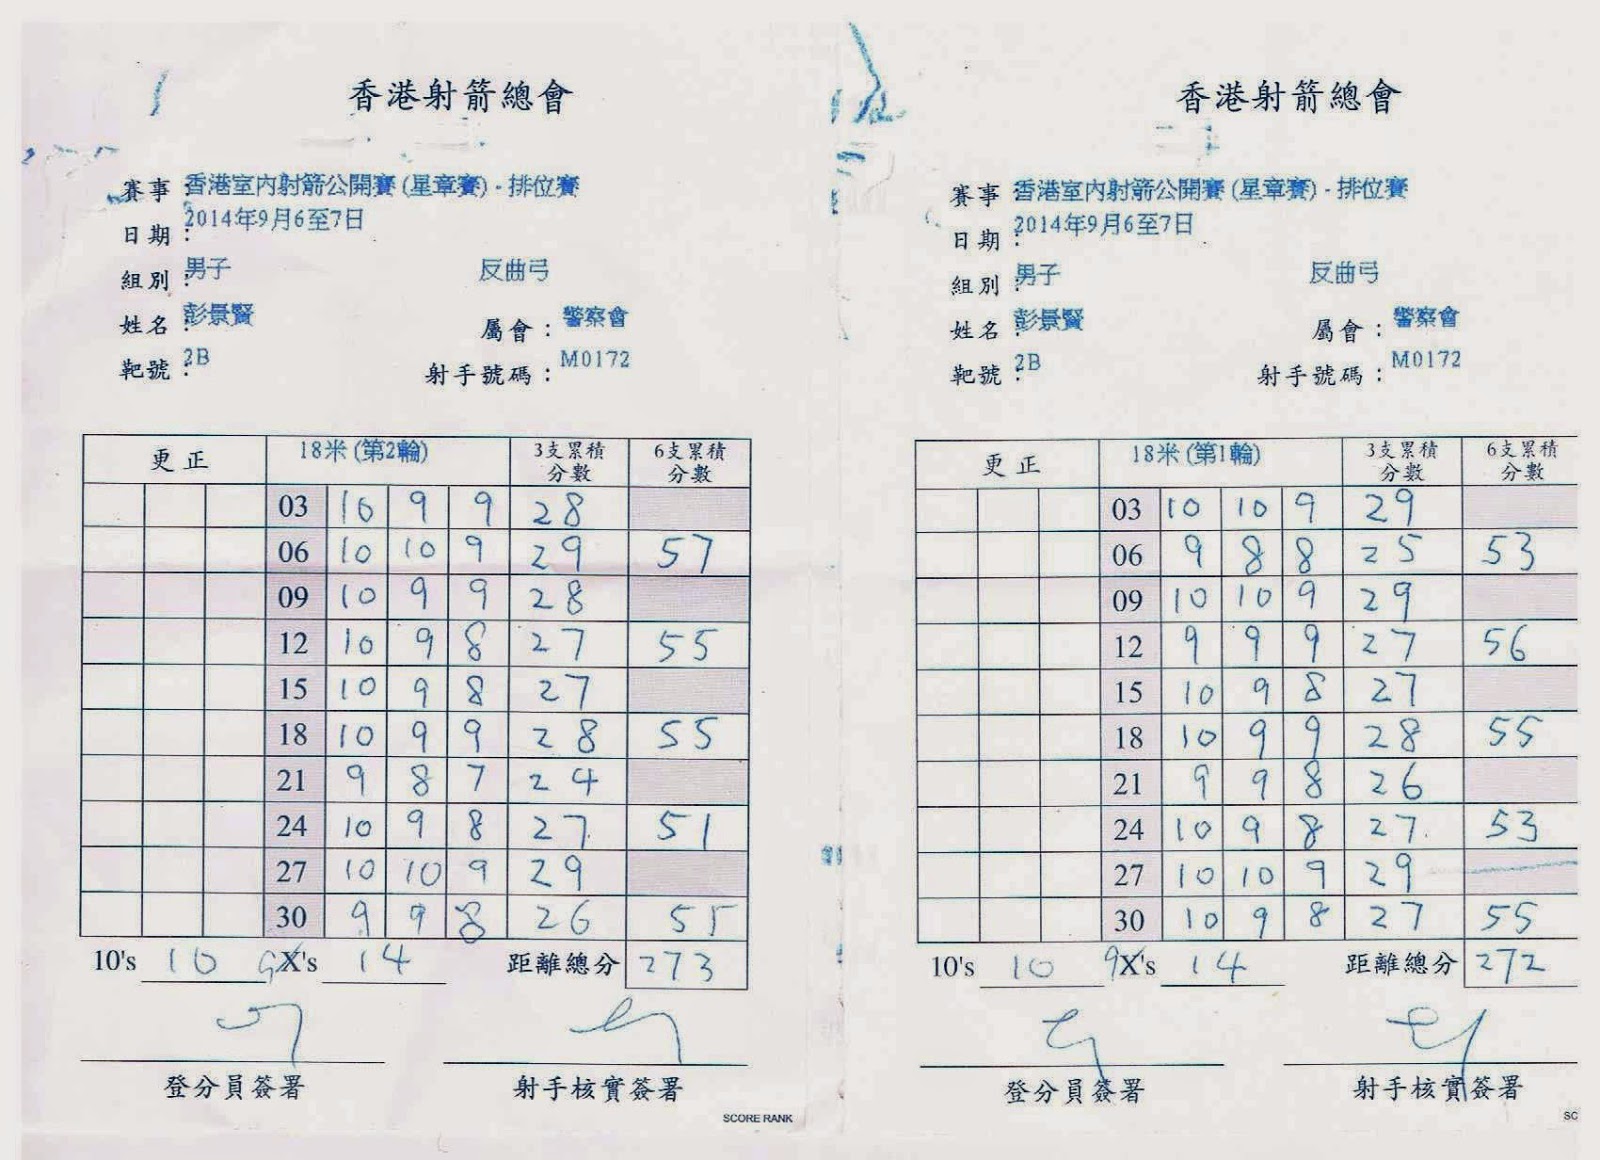 香港射箭總會
賽事：香港室內射箭公開賽 (星章賽) - 排位賽
日期：2014年9月6至7日
組別：男子 反曲弓
姓名：彭景賢 屬會：警察會
靶號：2B 射手號碼：M0172
更正 18米 (第2輪) 3支累積分數 6支累積分數
03 10 9 9 28
06 10 10 9 29 57
09 10 9 9 28
12 10 9 8 27 55
15 10 9 8 27
18 10 9 9 28 55
21 9 8 7 24
24 10 9 8 27 51
27 10 10 9 29
30 9 9 8 26 55
10's 10 9X's 14 距離總分 273
登分員簽署 射手核實簽署
SCORE RANK
香港射箭總會
賽事：香港室內射箭公開賽 (星章賽) - 排位賽
日期：2014年9月6至7日
組別：男子 反曲弓
姓名：彭景賢 屬會：警察會
靶號：2B 射手號碼：M0172
更正 18米 (第1輪) 3支累積分數 6支累積分數
03 10 10 9 29
06 9 8 8 25 53
09 10 10 9 29
12 9 9 9 27 56
15 10 9 8 27
18 10 9 9 28 55
21 9 9 8 26
24 10 9 8 27 53
27 10 10 9 29
30 10 9 8 27 55
10's 10 9X's 14 距離總分 272
登分員簽署 射手核實簽署
SC